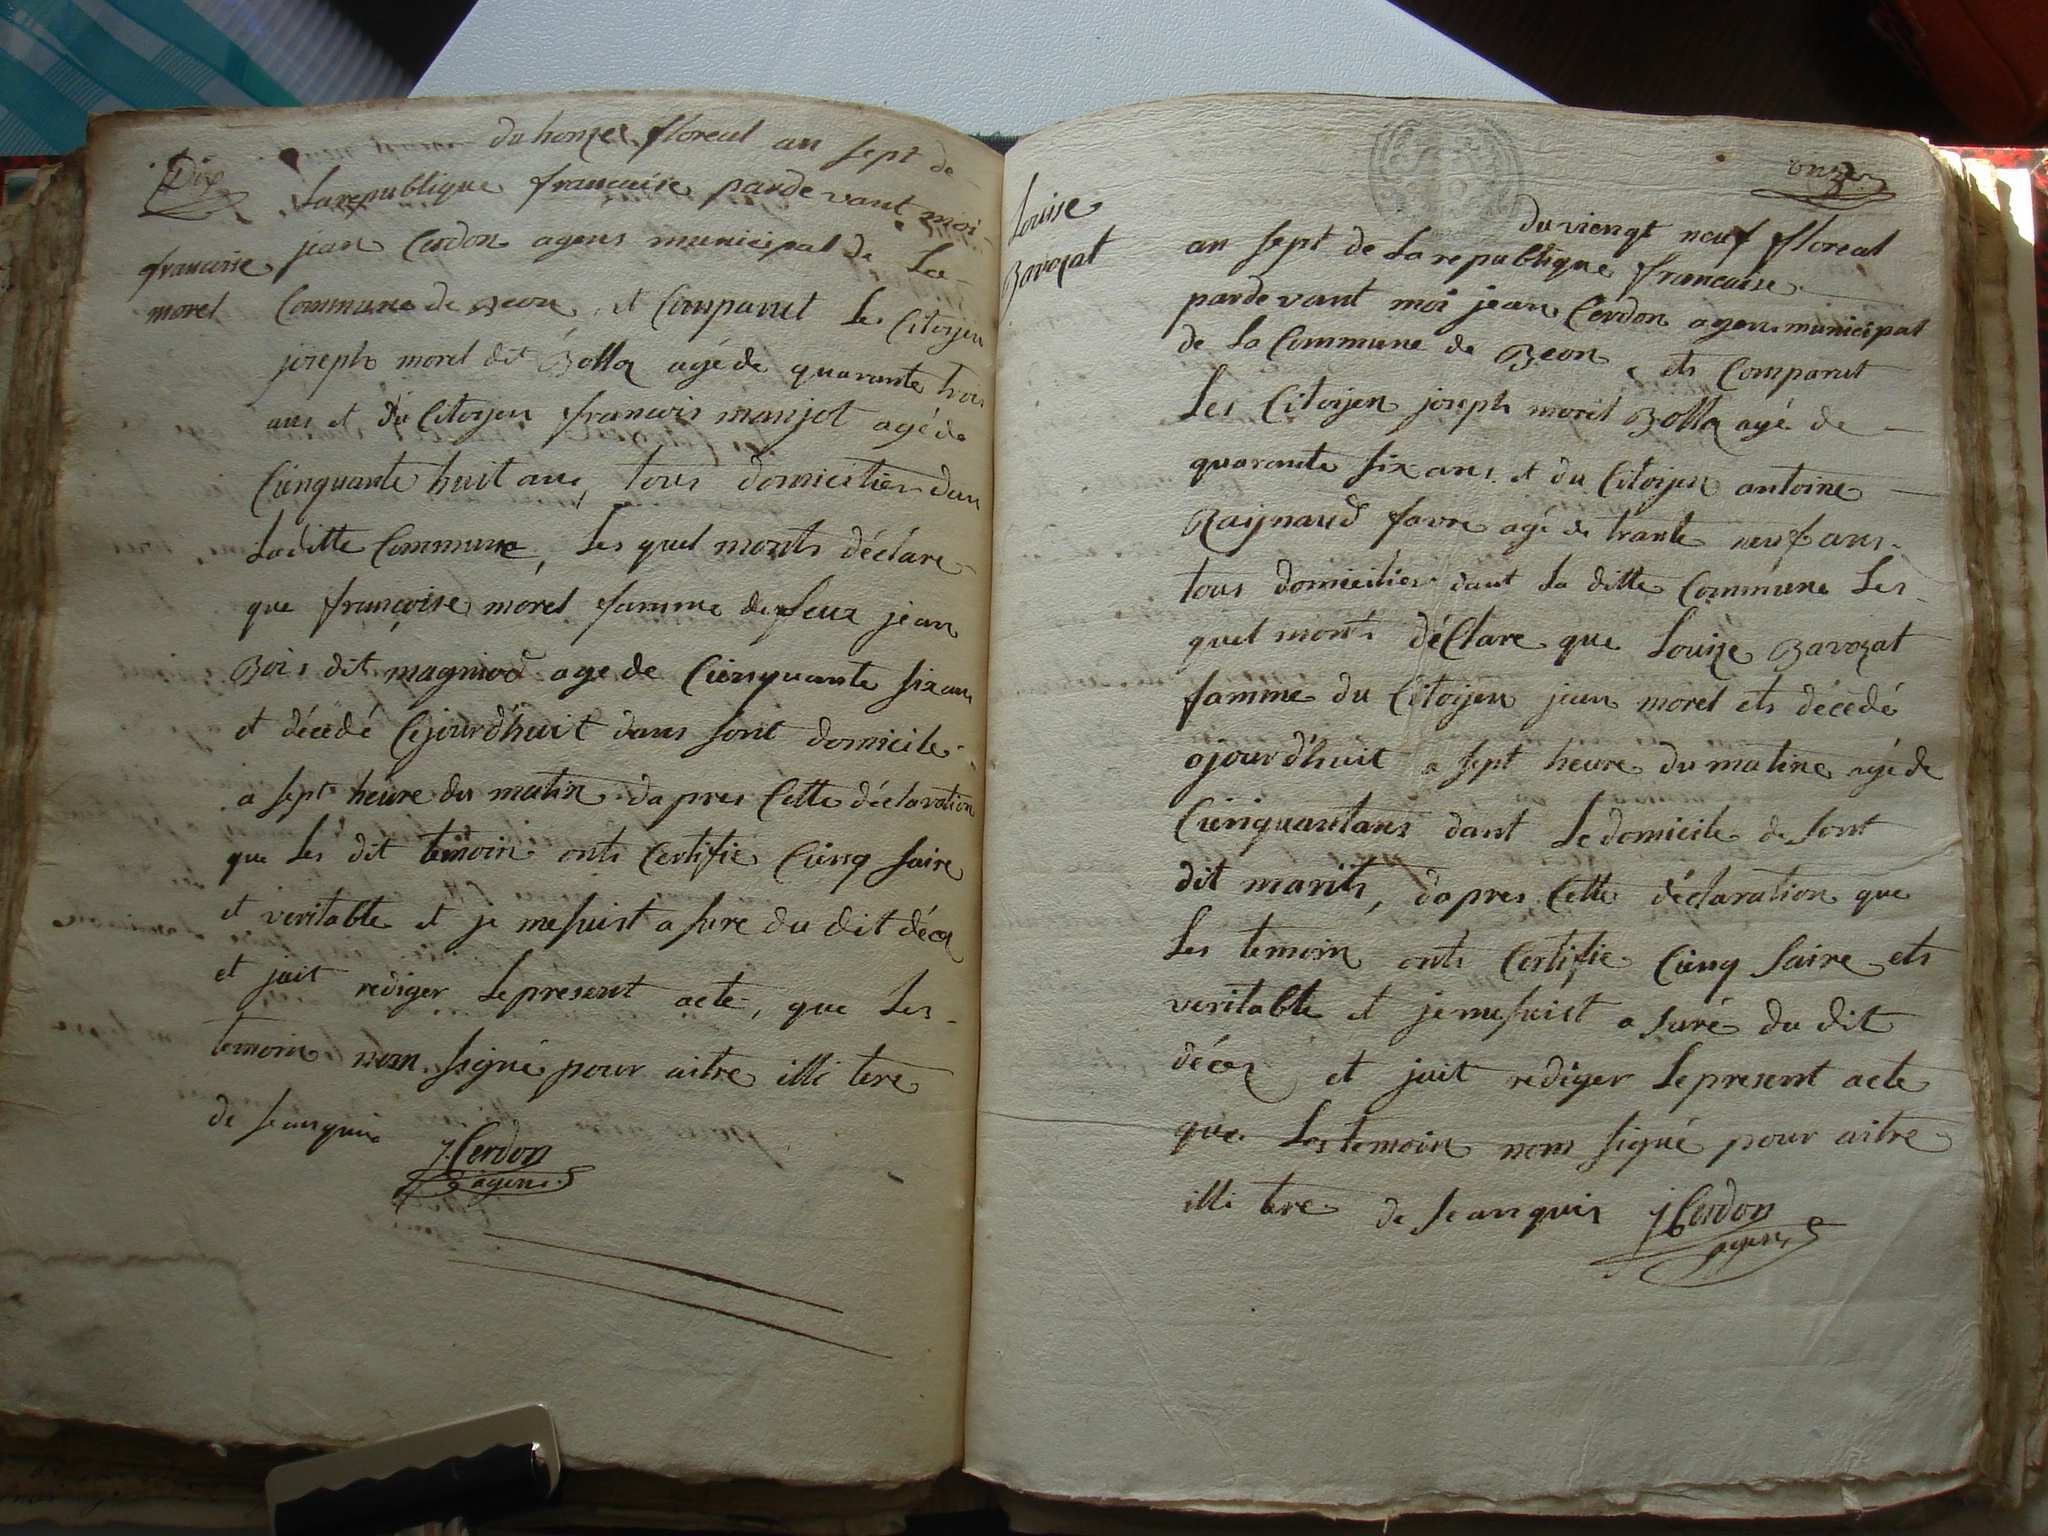 Dix
du honze floreal an sept de
La republique francaise pardevant moi
francoise
morel
jean Cerdon agens municipal de La
Commune de Beon, et Comparut Les Citoyen
joseph morel dit Bolla agé de quarante trois
ans et du Citoyen francois manjot agé de
Cienquante huit ans, tous domicilier dan
Laditte Commune, Les quel monts déclare
que françoise morel famme de feux jean
Bois dit magniod age de Cienquante six ans
et décédé Cejourd'huit dans sont domicile
a sept heure du matin dapres Cette déclaration
que Les dit temoin onts Certifie Cienq saire
et veritable et je me suist a sure du dit déca
et jait rediger Le present acte, que Les
temoin nom signé pour aitre illi tere
de seanquie
J Cerdon
agens
onze
Louise
Bavozat
du viengt neuf floreal
an sept de La republique francaise
parde vant moi jean Cerdon agens municipal
de La Commune de Beon, ets Comparut
Les Citoyen joseph morel Bolla agé de
quarante six ans et du Citoyen antoine
Raynaud favre agé de trante neuf ans
tous domicilier dant La ditte Commune Les
quel monts déClare que Louise Bavozat
famme du Citoyen jean morel ets décedé
ojourd'huit a sept heure du matine agé de
Cienquantans dant Le domicile de sont
dit marits, dapres Cette déclaration que
Les temoin onts Certifie Cienq saire ets
veritable et je me suist a suré du dit
décez et jait rediger Le present acte
que Les temoin nom signé pour aitre
illi tere de seanquis J Cerdon
agens